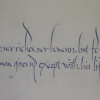 nor riches, nor honours, but fo
man gives up except with his lif